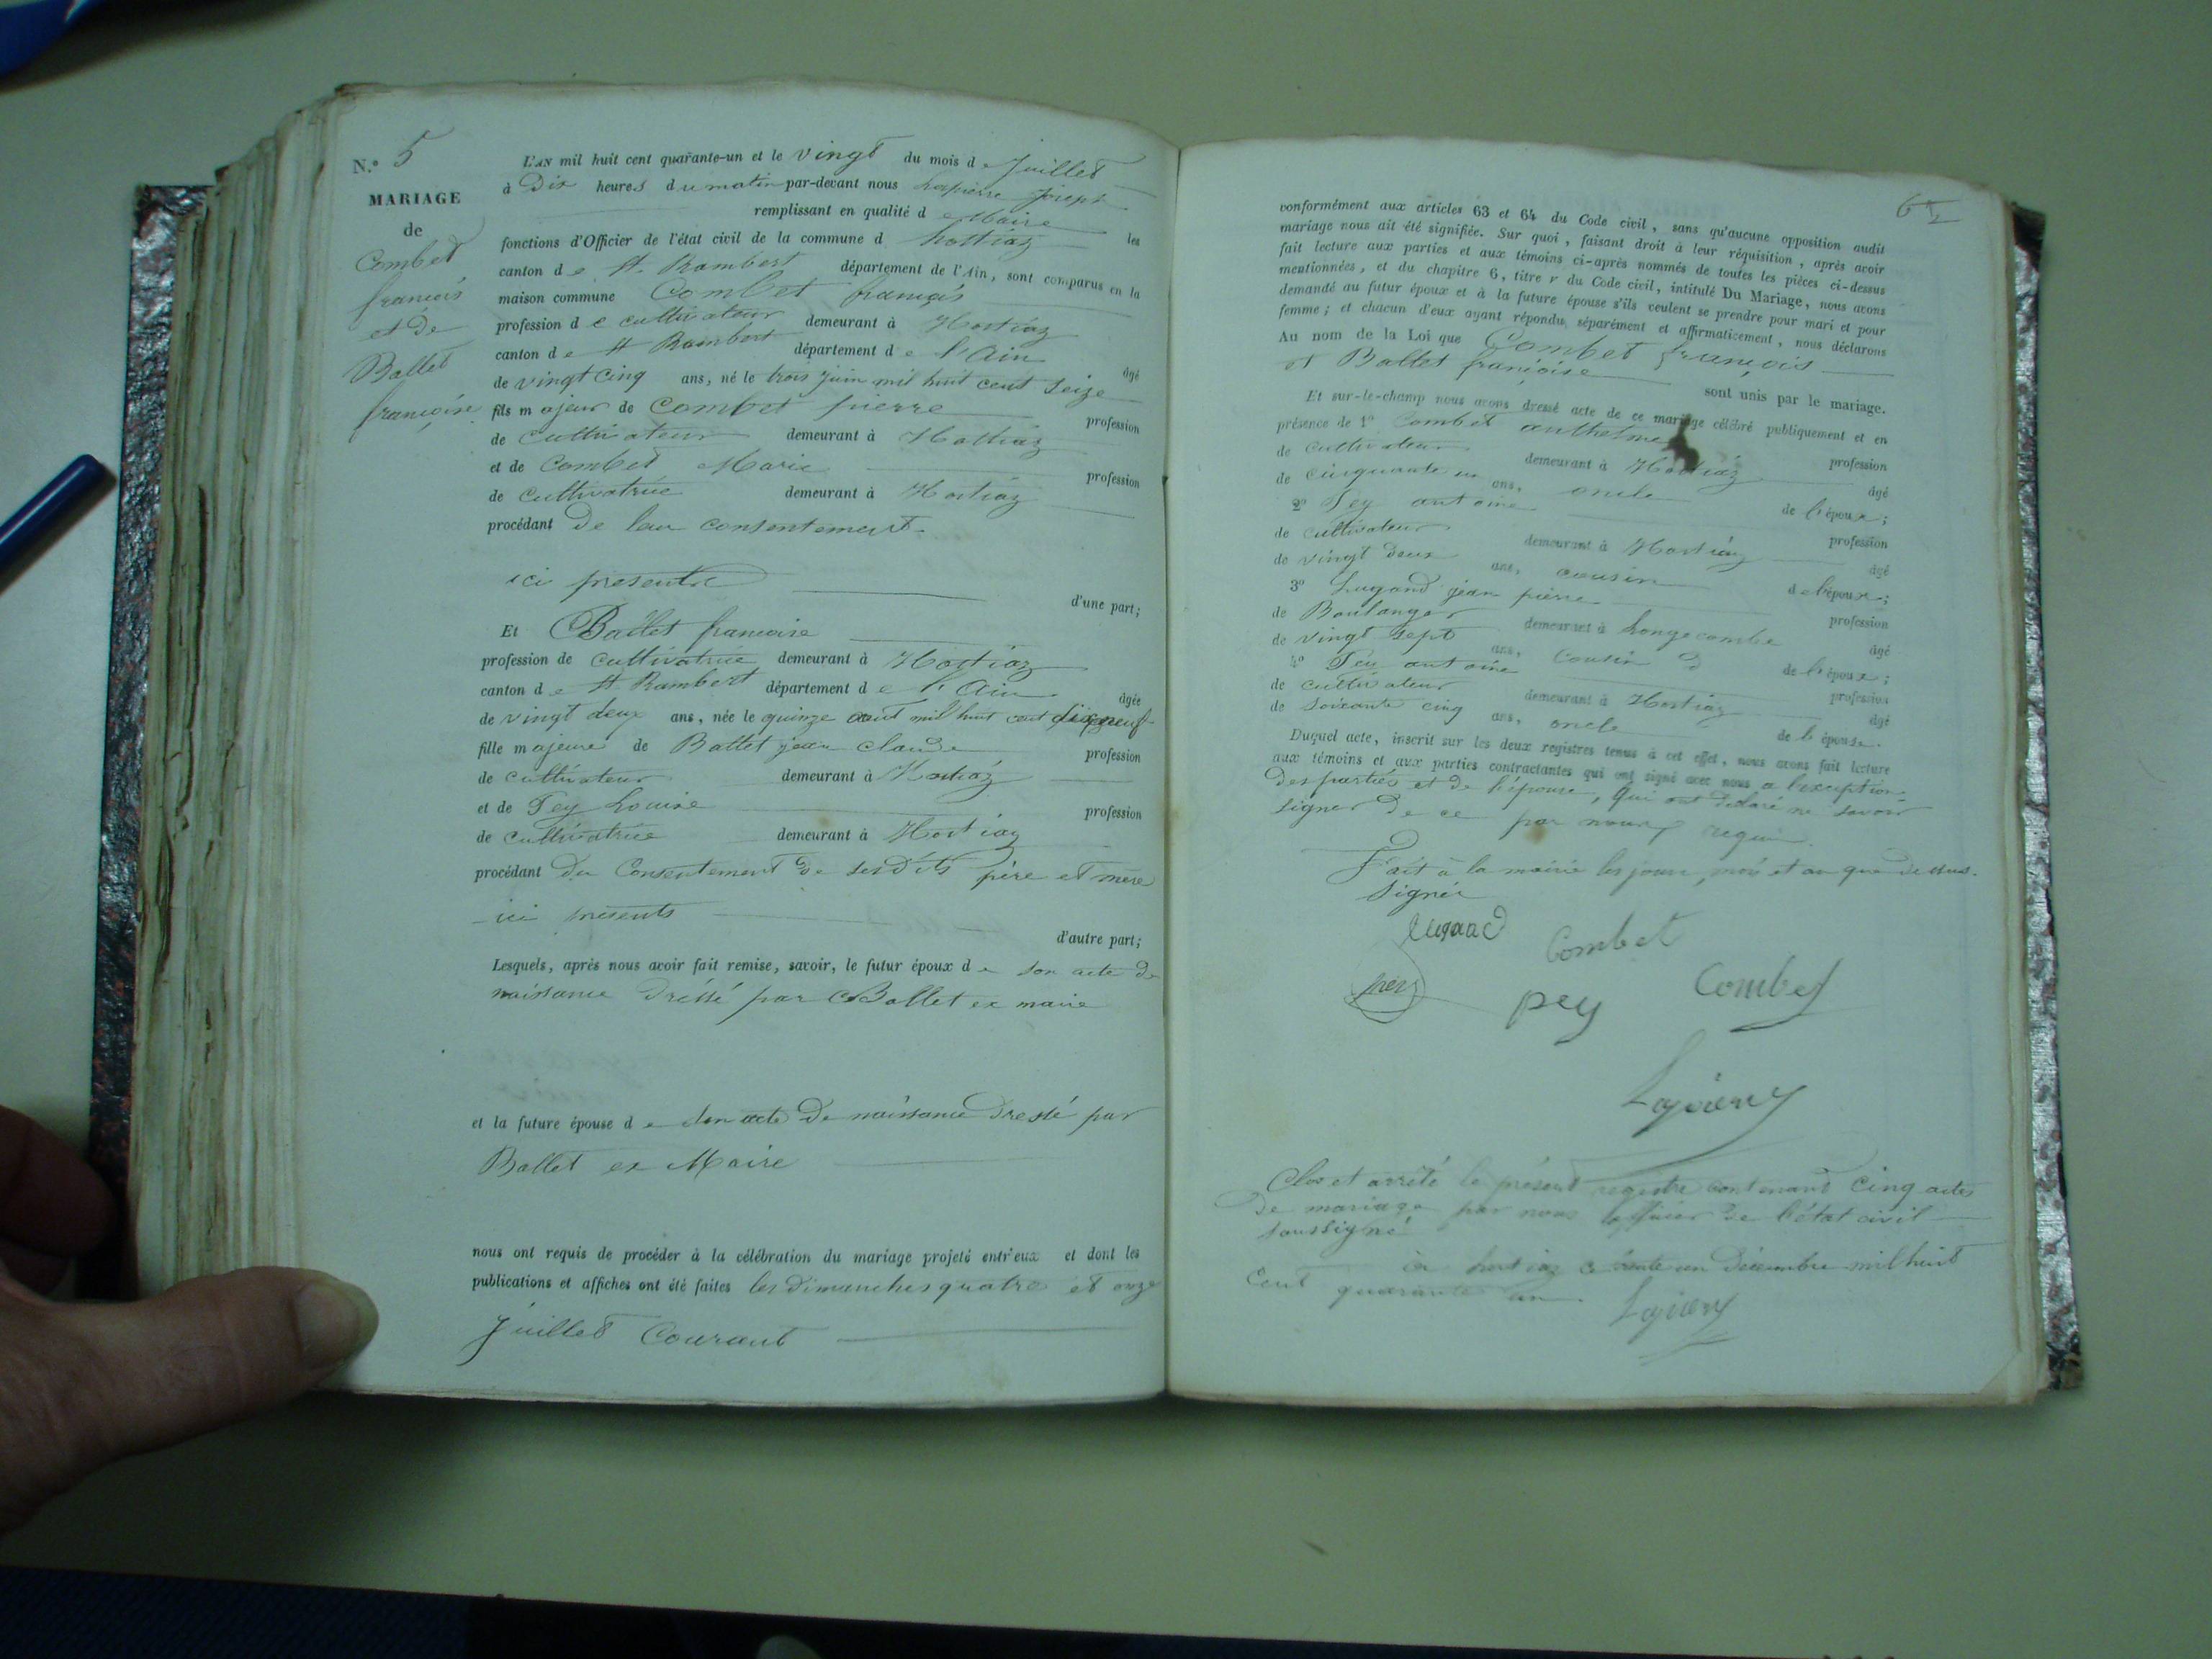 N.º 5
MARIAGE
de
Combet
françois
et de
Ballet
françoise
L'AN mil huit cent quarante-un et le vingt du mois de Juillet
à Dix heures du matin par-devant nous Lapierre Joseph
remplissant en qualité de Maire les
fonctions d'Officier de l'état civil de la commune d hostiaz
canton de St. Rambert département de l'Ain, sont comparus en la
maison commune Combet françois
profession de cultivateur demeurant à Hostiaz
canton de St Rambert département de l'Ain âgé
de vingt cinq ans, né le trois juin mil huit cent seize
fils majeur de Combet pierre profession
de cultivateur demeurant à Hostiaz
et de Combet Marie profession
de Cultivatrice demeurant à Hostiaz
procédant de leur consentement.
ici present
d'une part;
Et Ballet francoise
profession de cultivatrice demeurant à Hostiaz
canton de St Rambert département de l'Ain âgée
de vingt deux ans, née le quinze aout mil huit cent dixneuf
fille majeure de Ballet jean claude profession
de cultivateur demeurant à Hostiaz
et de Pey Louise profession
de cultivatrice demeurant à Hostiaz
procédant du Consentement de sesdits père et mère
ici presents
d'autre part;
Lesquels, après nous avoir fait remise, savoir, le futur époux de son acte de
naissance dréssé par Ballet ex maire
et la future épouse de son acte de naissance dressé par
Ballet ex Maire
nous ont requis de procéder à la célébration du mariage projeté entr'eux et dont les
publications et affiches ont été faites les dimanches quatre et onze
Juillet Courant
conformément aux articles 63 et 64 du Code civil, sans qu'aucune opposition audit
mariage nous ait été signifiée. Sur quoi, faisant droit à leur réquisition, après avoir
fait lecture aux parties et aux témoins ci-après nommés de toutes les pièces ci-dessus
mentionnées, et du chapitre 6, titre v du Code civil, intitulé Du Mariage, nous avons
demandé au futur époux et à la future épouse s'ils veulent se prendre pour mari et pour
femme; et chacun d'eux ayant répondu séparément et affirmativement, nous déclarons
Au nom de la Loi que Combet françois
et Ballet françoise sont unis par le mariage.
Et sur-le-champ nous avons dressé acte de ce mariage célébré publiquement et en
présence de 1º Combet anthelme profession
de cultivateur demeurant à Hostiaz âgé
de cinquante un ans, oncle de l'époux;
2º Pey antoine profession
de cultivateur demeurant à Hostiaz âgé
de vingt deux ans, cousin de l'époux;
3º Lugand jean pierre profession
de Boulanger demeurant à Longecombe âgé
de vingt sept ans, cousin de l'époux;
4º Pey antoine profession
de cultivateur demeurant à Hostiaz âgé
de soixante cinq ans, oncle de l'épouse.
Duquel acte, inscrit sur les deux registres tenus à cet effet, nous avons fait lecture
aux témoins et aux parties contractantes qui ont signé avec nous a l'exception
des parties et de l'épouse, qui ont déclaré ne savoir
signer de ce par nous requis.
Fait à la mairie les jour, mois et an que dessus.
Signés
Lugand
Combet
pey
pey
Combet
Lapierre
Clos et arrêté le présent registre contenant Cinq actes
de mariage par nous officier de l'état civil
soussigné
à hostiaz ce trente un Décembre mil huit
Cent quarante un.
Lapierre